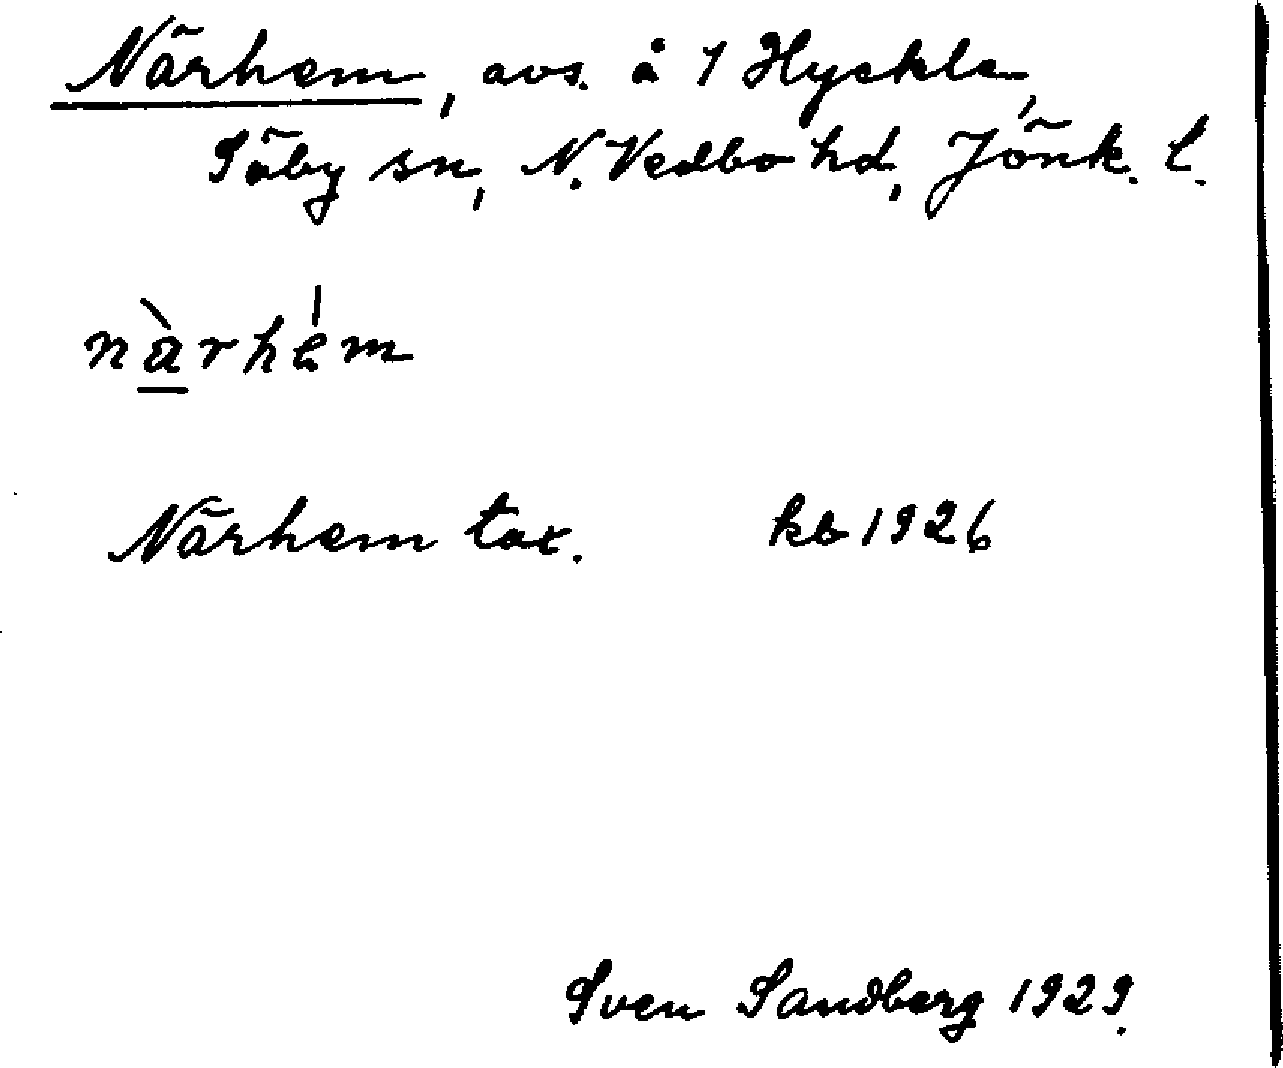 Närhem, avs. å 1 Hyckle,
Säby sn, N. Vedbo hd, Jönk. l.
nàrhém
Närhem tax. kb 1926
Sven Sandberg 1929.